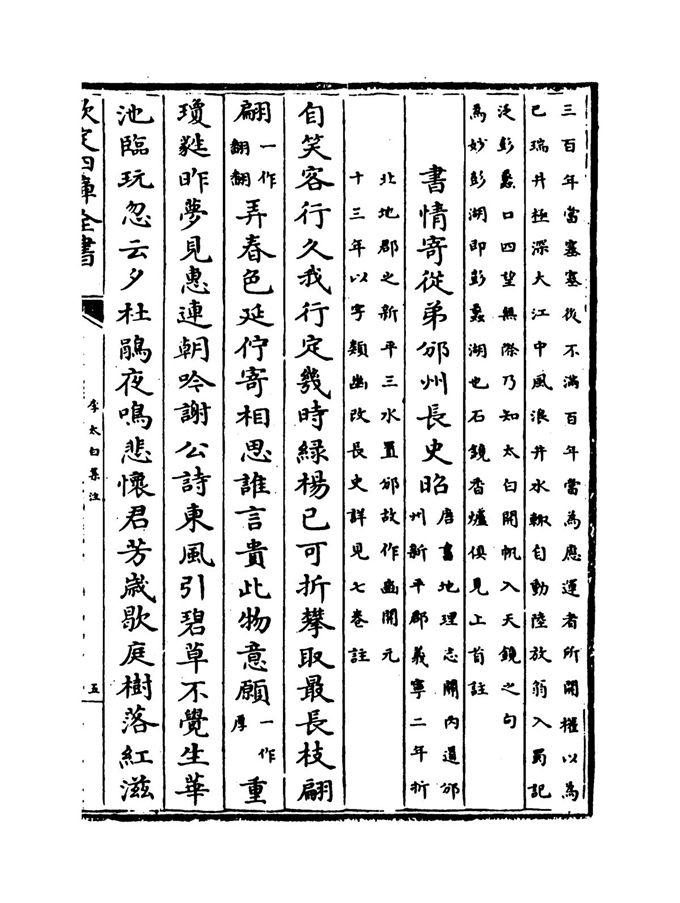 三百年當塞塞後不滿百年當為應運者所開權以為
己瑞井極深大江中風浪井水輙自動陸放翁入蜀記
泛彭蠡口四望無際乃知太白開帆入天鏡之句
為妙彭湖即彭蠡湖也石鏡香爐俱見上首註
書情寄從弟邠州長史昭
唐書地理志關内道邠
州新平郡義寧二年析
北地郡之新平三水置邠故作豳開元
十三年以字類幽改長史詳見七卷註
自笑客行久我行定幾時緑楊已可折攀取最長枝翩
翩一作翻翻弄春色延佇寄相思誰言貴此物意願一作厚重
瓊蕤昨夢見惠連朝吟謝公詩東風引碧草不覺生華
池臨玩忽云夕杜鵑夜鳴悲懷君芳歳歇庭樹落紅滋
欽定四庫全書
李太白集注
五